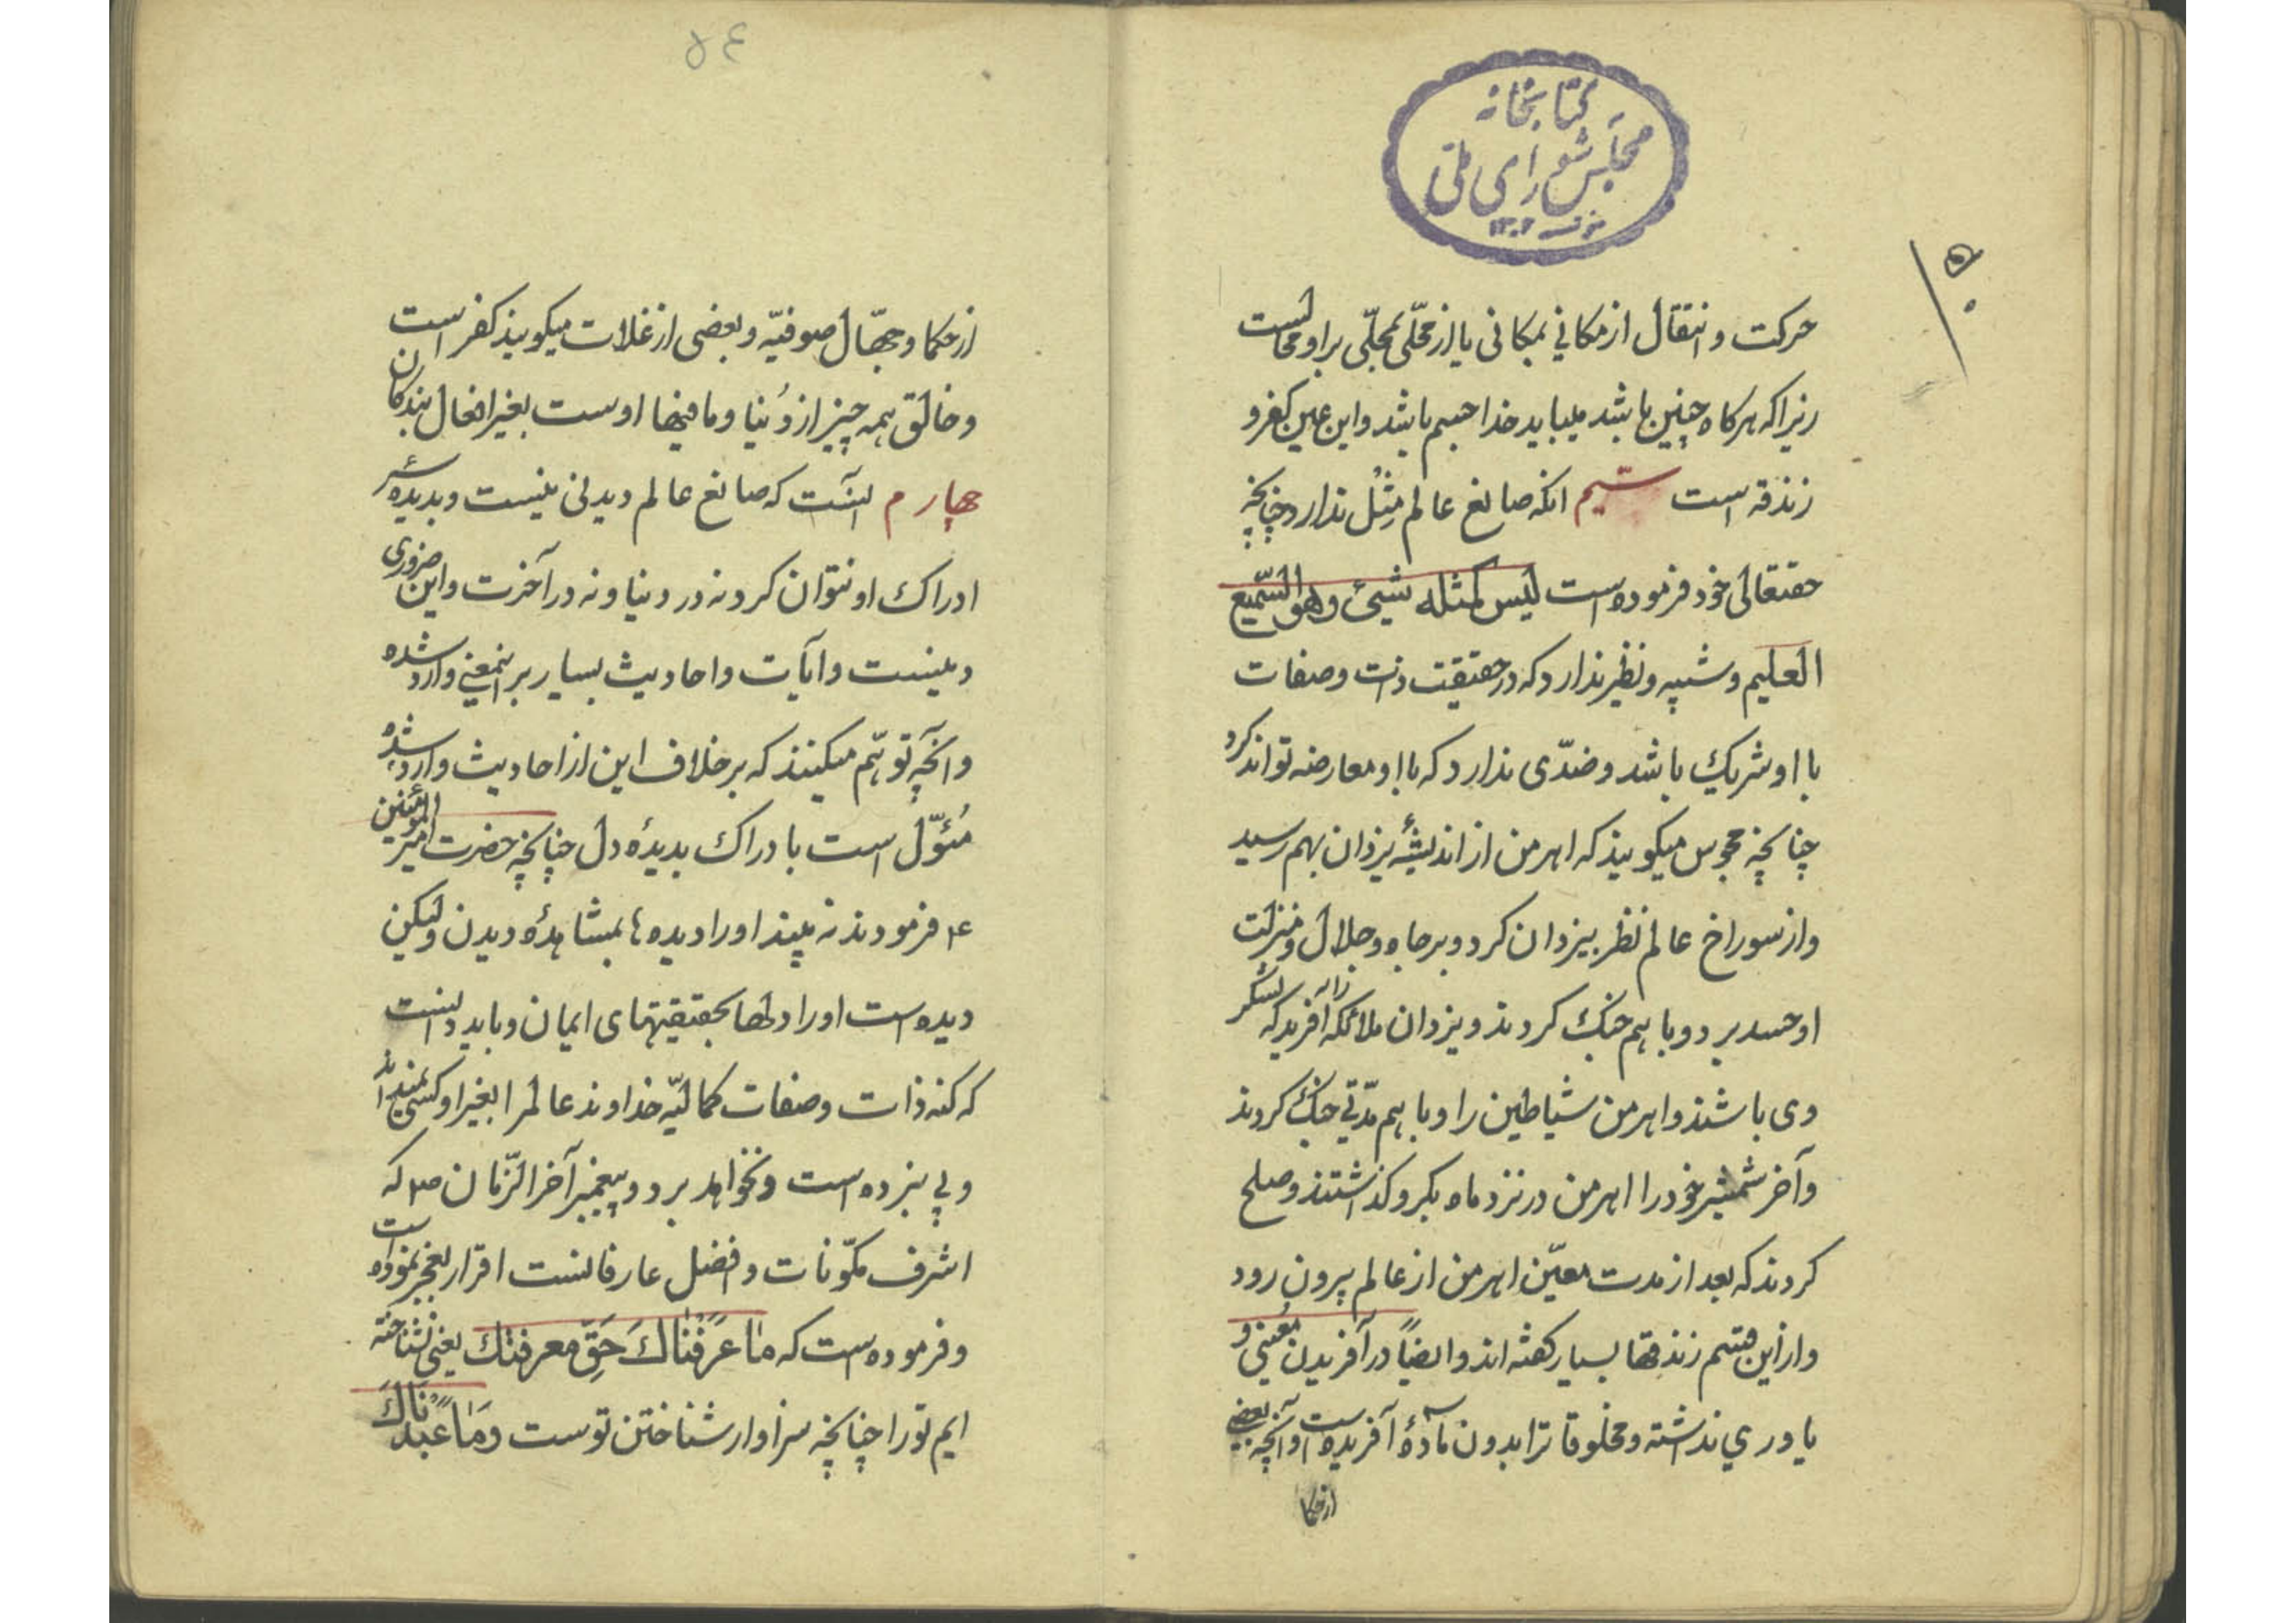 کتابخانه
مجلس شورای ملی
۱۳۰۲
حرکت و انتقال از مکانی بمکانی یا از محلّی بمحلّی بر او محالست
زیرا که هرکاه چنین باشد میباید خدا جسم باشد و این عین کفر و
زندقه است سیّم انکه صانع عالم مِثل ندارد چنانچه
حقتعالی خود فرموده است لیس کمثله شیئ وهو السّمیع
العلیم و شبیه و نظیر ندارد که در حقیقت ذات و صفات
با او شریک باشد و ضدّی ندارد که با او معارضه تواند کرد
چنانچه مجوس میکویند که اهرمن از اندیشهٔ یزدان بهم رسید
و از سوراخ عالم نظر بیزدان کرد و بر جاه و جلال و منزلت
او حسد برد و با هم جنک کردند و یزدان ملائکه را آفرید که لشکر
وی باشند و اهرمن شیاطین را و با هم مدّتی جنک کردند
و آخر شمشیر خود را اهرمن در نزد ماه بکرو کذاشتند و صلح
کردند که بعد از مدت معیّن اهرمن از عالم بیرون رود
و ازاین قسم زندقها بسیار کفته اند و ایضاً در آفریدن مُعینی و
یاوری نداشته و مخلوقاترا بدون مادّهٔ آفریده است و آنچه بعضی
ازحکما
۵۴
ازحکما و جهّال صوفیّه و بعضی از غلات میکویند کفر است
و خالق همه چیز از دُنیا و مافیها اوست بغیر افعال بندکان
چهارم انست که صانع عالم دیدنی نیست و بدیدهٔ سر
ادراک او نتوان کرد نه در دنیا و نه در آخرت و این ضروری
دینست و آیات و احادیث بسیار بر اینمعنی وارد شده
و آنچه توهّم میکنند که بر خلاف این از احادیث وارد شده
مُئوّل است بادراک بدیدهٔ دل چنانچه حضرت امیر المؤمنین
ع فرمودند نه بیند او را دیده ها بمشاهدهٔ دیدن ولیکن
دیده است او را دلها بحقیقتهای ایمان و باید دانست
که کنه ذات و صفات کمالیّه خداوند عالمرا بغیر او کسی نمیداند
و پی نبرده است و نخواهد برد و پیغمبر آخر الزّمان ص که
اشرف مکوّنات و افضل عارفانست اقرار بعجز نموده است
و فرموده است که ما عَرَفْناكَ حَقّ معرفتك یعنی نشناخته
ایم تو را چنانچه سزاوار شناختن توست وَمٰا عَبَدْنَاكَ